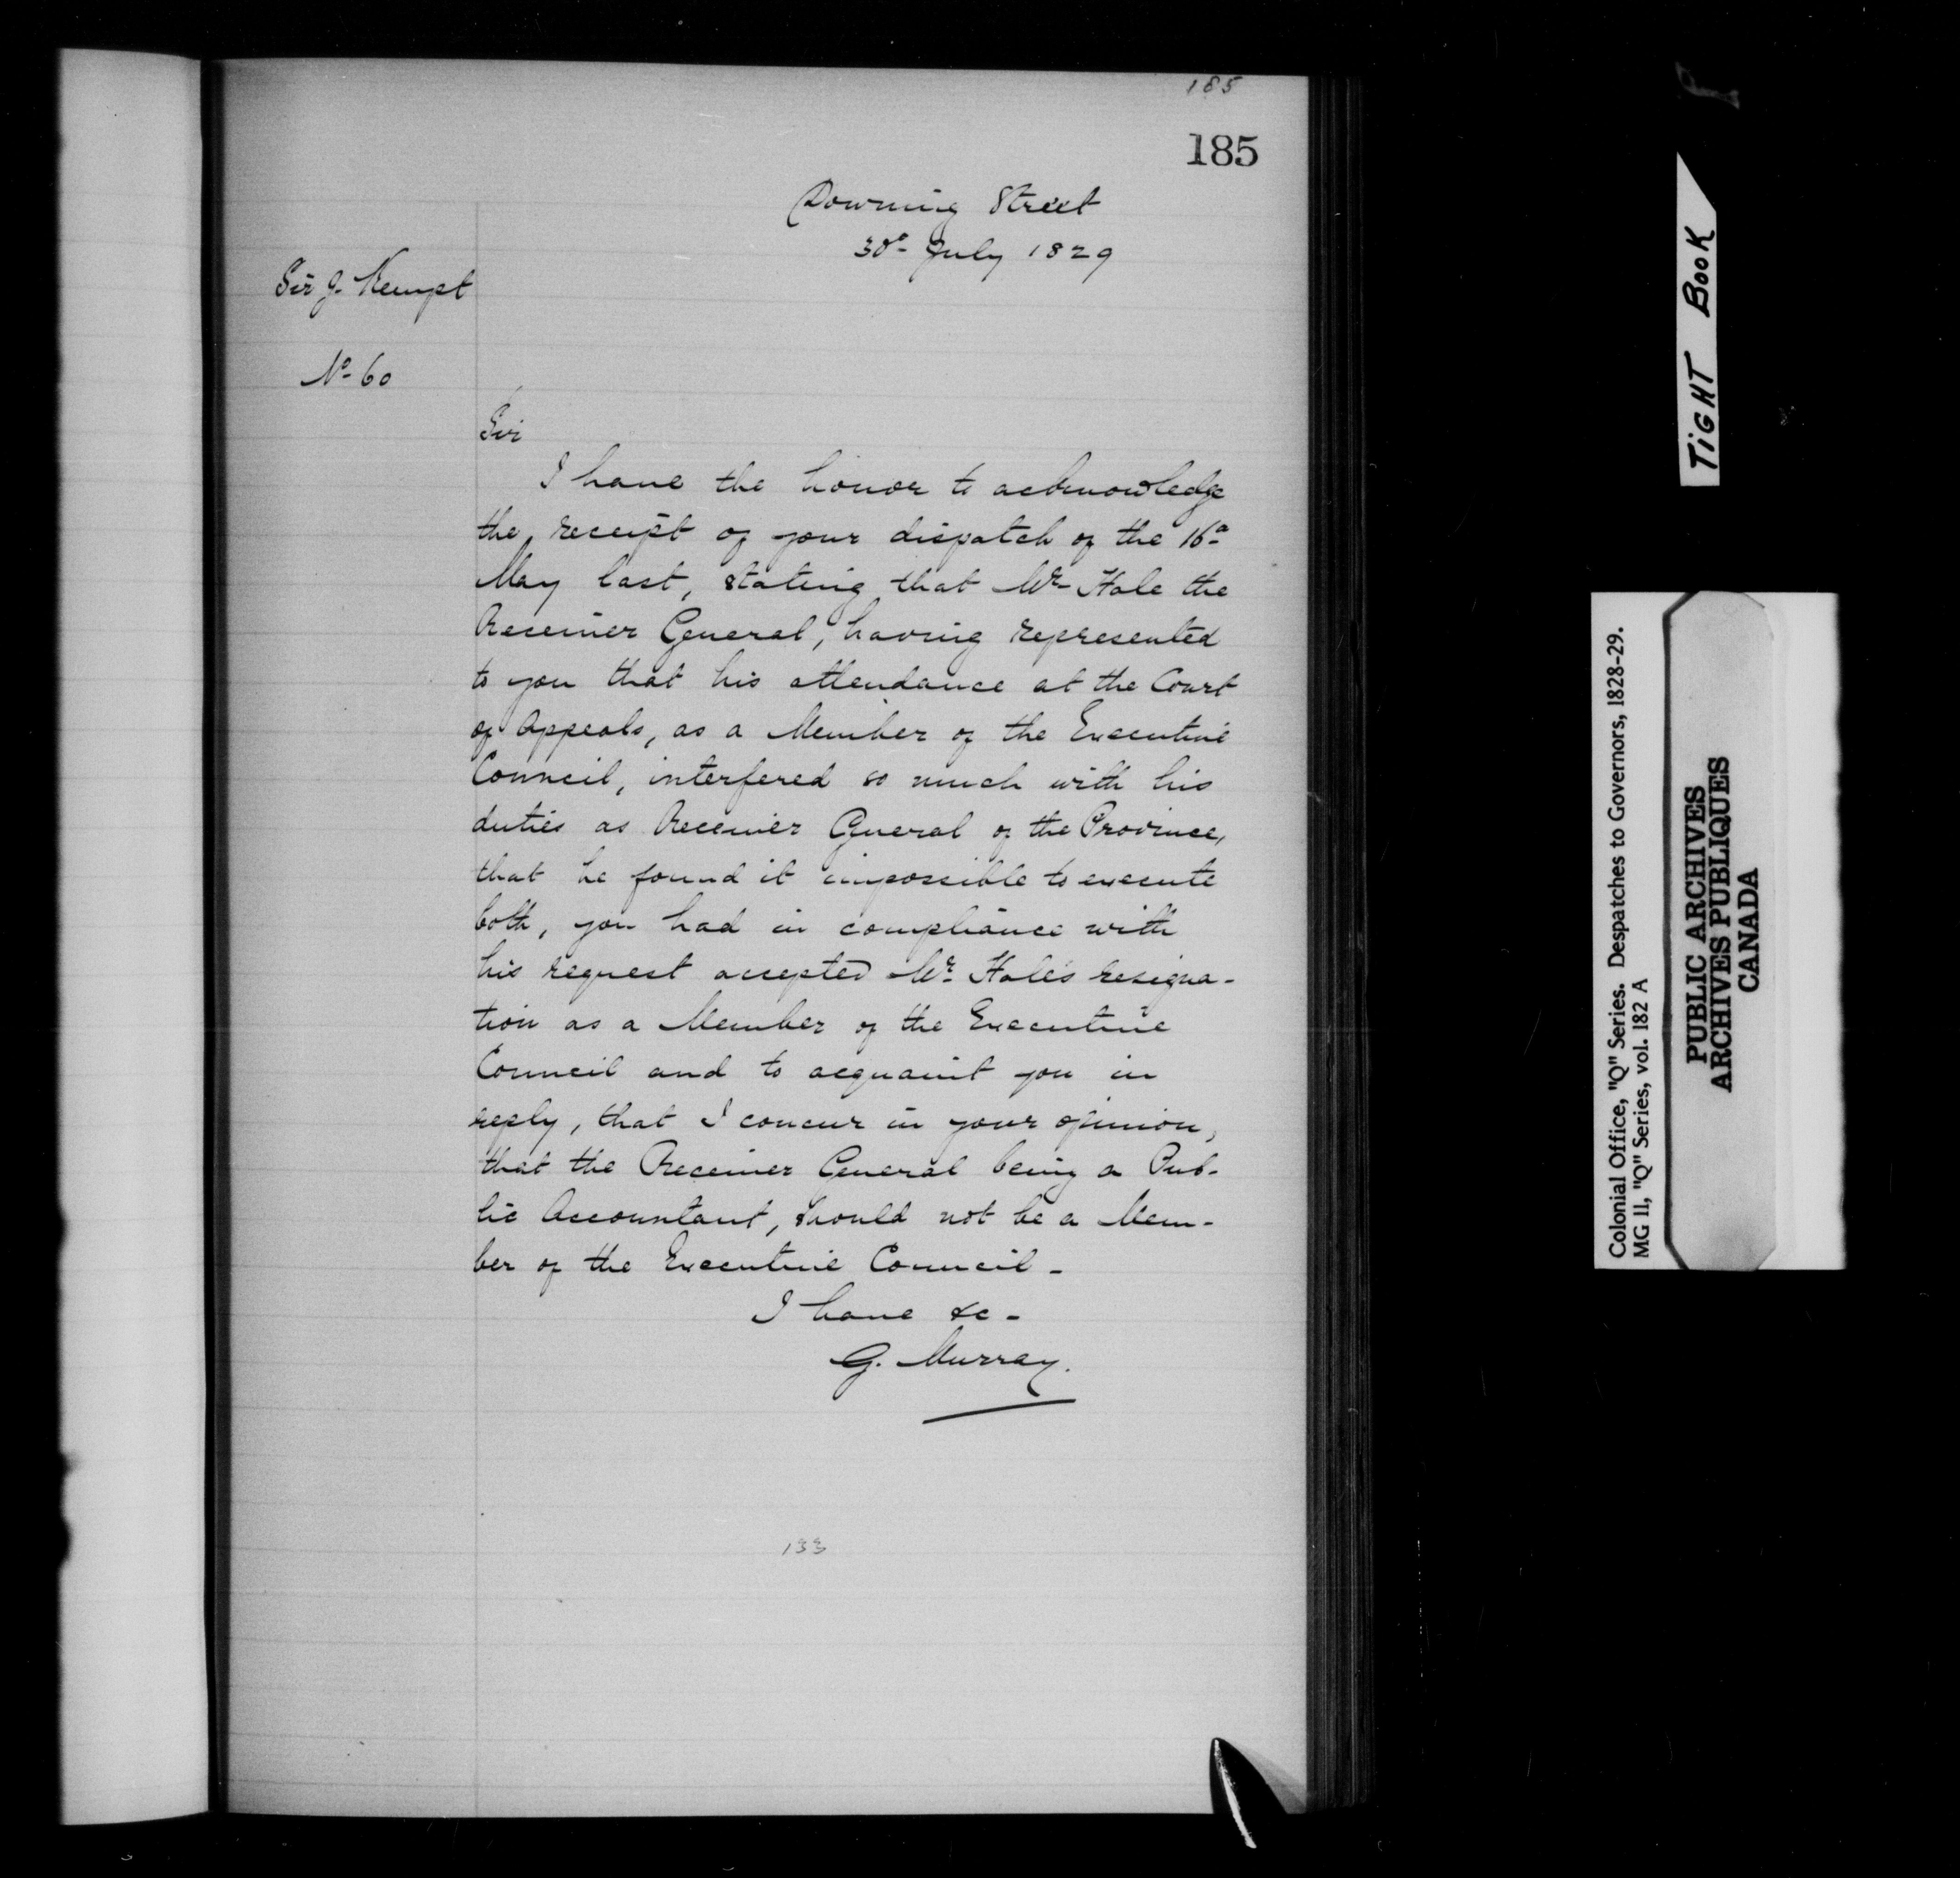 185
185
Downing Street
30th July 1829
Sir J. Kempt
No 60
Sir
I have the honor to acknowledge
the receipt of your dispatch of the 16th
May last, stating that Mr Hale the
Receiver General, having represented
to you that his attendance at the Court
of Appeals, as a Member of the Executive
Council, interfered so much with his
duties as Receiver General of the Province,
that he found it impossible to execute
both, you had in compliance with
his request accepted Mr. Hale's resigna-
tion as a Member of the Executive
Council and to acquaint you in
reply, that I concur in your opinion,
that the Receiver General being a Pub-
lic Accountant, should not be a Mem-
ber of the Executive Council -
I have &c -
G. Murray.
133
TIGHT BOOK
Colonial Office, "Q" Series. Despatches to Governors, 1828-29.
MG 11, "Q" Series, vol. 182 A
PUBLIC ARCHIVES
ARCHIVES PUBLIQUES
CANADA